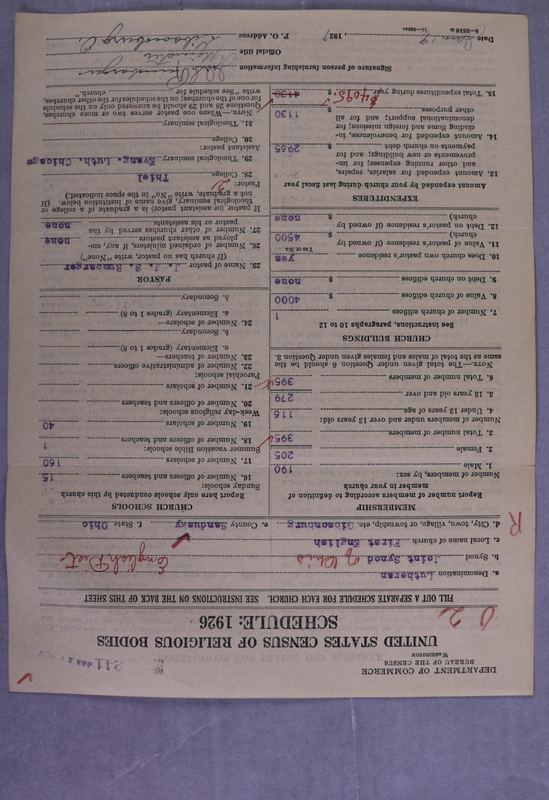 DEPARTMENT OF COMMERCE
BUREAU OF THE CENSUS
WASHINGTON
UNITED STATES CENSUS OF RELIGIOUS BODIES
SCHEDULE: 1926
FILL OUT A SEPARATE SCHEDULE FOR EACH CHURCH. SEE INSTRUCTIONS ON THE BACK OF THIS SHEET
a. Denomination Lutheran
b. Synod Joint Synod of Ohio English Dist.
c. Local name of church First English
d. City, town, village, or township, etc. Gibsonburg e. County Sandusky f. State Ohio
R
MEMBERSHIP
Report number of members according to definition of member in your church
Number of members, by sex:
1. Male 190
2. Female 205
3. Total number of members. 395
Number of members under and over 13 years old:
4. Under 13 years of age. 116
5. 13 years old and over 279
6. Total number of members 395
NOTE.—The total given under Question 6 should be the
same as the total of males and females given under Question 3.
CHURCH BUILDINGS
See instructions, paragraphs 10 to 12
7. Number of church edifices 1
8. Value of church edifices $ 4000
9. Debt on church edifices $ none
10. Does church own pastor's residence yes
Yes or No
11. Value of pastor's residence (if owned by
church) $ 4500
12. Debt on pastor's residence (if owned by
church) $ none
EXPENDITURES
Amount expended by your church during last fiscal year
13. Amount expended for salaries, repairs,
and other running expenses; for im-
provements or new buildings; and for
payments on church debt $ 2965
14. Amount expended for benevolences, in-
cluding home and foreign missions; for
denominational support; and for all
other purposes. $ 1130
15. Total expenditures during year $ 4130 $4095
CHURCH SCHOOLS
Report here only schools conducted by this church
Sunday schools:
16. Number of officers and teachers 15
17. Number of scholars 160
Summer vacation Bible schools:
18. Number of officers and teachers 1
19. Number of scholars 40
Week-day religious schools:
20. Number of officers and teachers
21. Number of scholars
Parochial schools:
22. Number of administrative officers
23. Number of teachers—
a. Elementary (grades 1 to 8)
b. Secondary
24. Number of scholars—
a. Elementary (grades 1 to 8)
b. Secondary
PASTOR
25. Name of pastor J. I. S. Rumbarger
(If church has no pastor, write "None")
26. Number of ordained ministers, if any, em-
ployed as assistant pastors none
27. Number of other churches served by the
pastor or his assistants none
If pastor (or assistant pastor) is a graduate of a college or
theological seminary, give name of institution below. (If
not a graduate, write "No" in the space indicated.)
Pastor:
28. College. Thiel
29. Theological seminary. Evang. Luth. Chicago
Assistant pastor:
30. College.
31. Theological seminary.
NOTE.—Where one pastor serves two or more churches,
Questions 28 and 29 should be answered only on the schedule
for one of the churches; on the schedules for the other churches,
write "See schedule for church."
Signature of person furnishing information
Official title Minister
P. O. Address Gibsonburg O.
Date Jan. 19, 1927